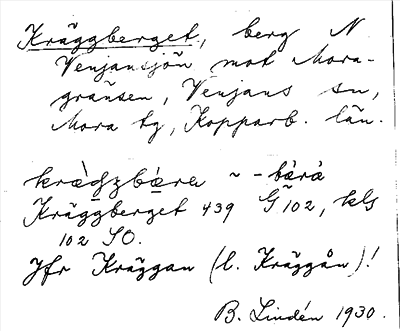 Kräggberget, berg N
Venjansjön mot Mora-
gränsen, Venjans sn,
Mora tg, Kopparb. län.
kræ̀ʤzbǽra ~ -bàrà
Kräggberget 439 G 102, kls
102 SO.
Jfr Kräggan (l. Kräggån)!
B. Lindén 1930.